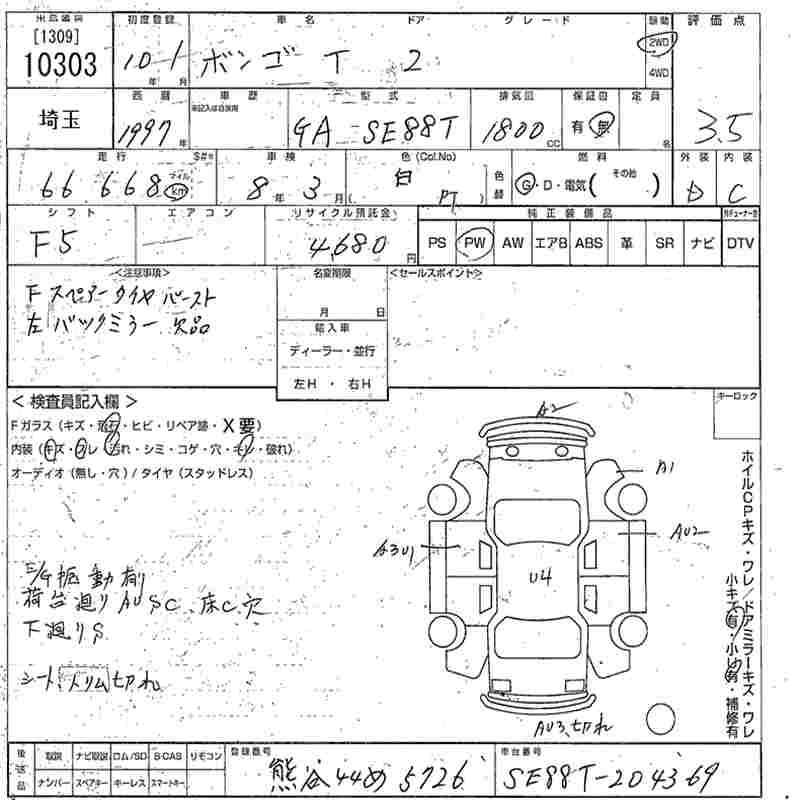 [1309]
10303
初度登録
車名
ドア
グレード
駆動
評価点
10年 1月
ボンゴ T 2
2WD
4WD
埼玉
西暦
1997年
車歴
型式
GA SE88T
排気量
1800cc
保証書
有 無
定員
名
3.5
走行
S#*
66,668 マイル km
車検
8年 3月
色 (Col.No)
白
色替
燃料
G・D・電気( その他 )
外装
D
内装
C
シフト
F5
エアコン
リサイクル預託金
4,680円
純正装備品
PS
PW
AW
エアB
ABS
革
SR
ナビ
DTV
<注意事項>
F スペアータイヤ バースト
左 バックミラー 欠品
名変期限
月 日
輸入車
ディーラー・並行
左H ・ 右H
<セールスポイント>
キーロック
< 検査員記入欄 >
Fガラス (キズ・飛石・ヒビ・リペア跡・X要)
内装 (キズ・スレ・汚れ・シミ・コゲ・穴・キレ・破れ)
オーディオ (無し・穴) / タイヤ (スタッドレス)
A2
A1
A3U1
AU2
U4
AU3、切れ
E/G振動有り
荷台廻りAUSC、床C、穴
下廻りS
シート、トリム切れ
ホイルCPキズ・ワレ/ドアミラーキズ・ワレ
小キズ有・小凹有・補修有
後送品
取説
ナビ取説
ロム/SD
B-CAS
リモコン
ナンバー
スペアキー
キーレス
スマートキー
登録番号
熊谷 44め 5726
車台番号
SE88T-204369